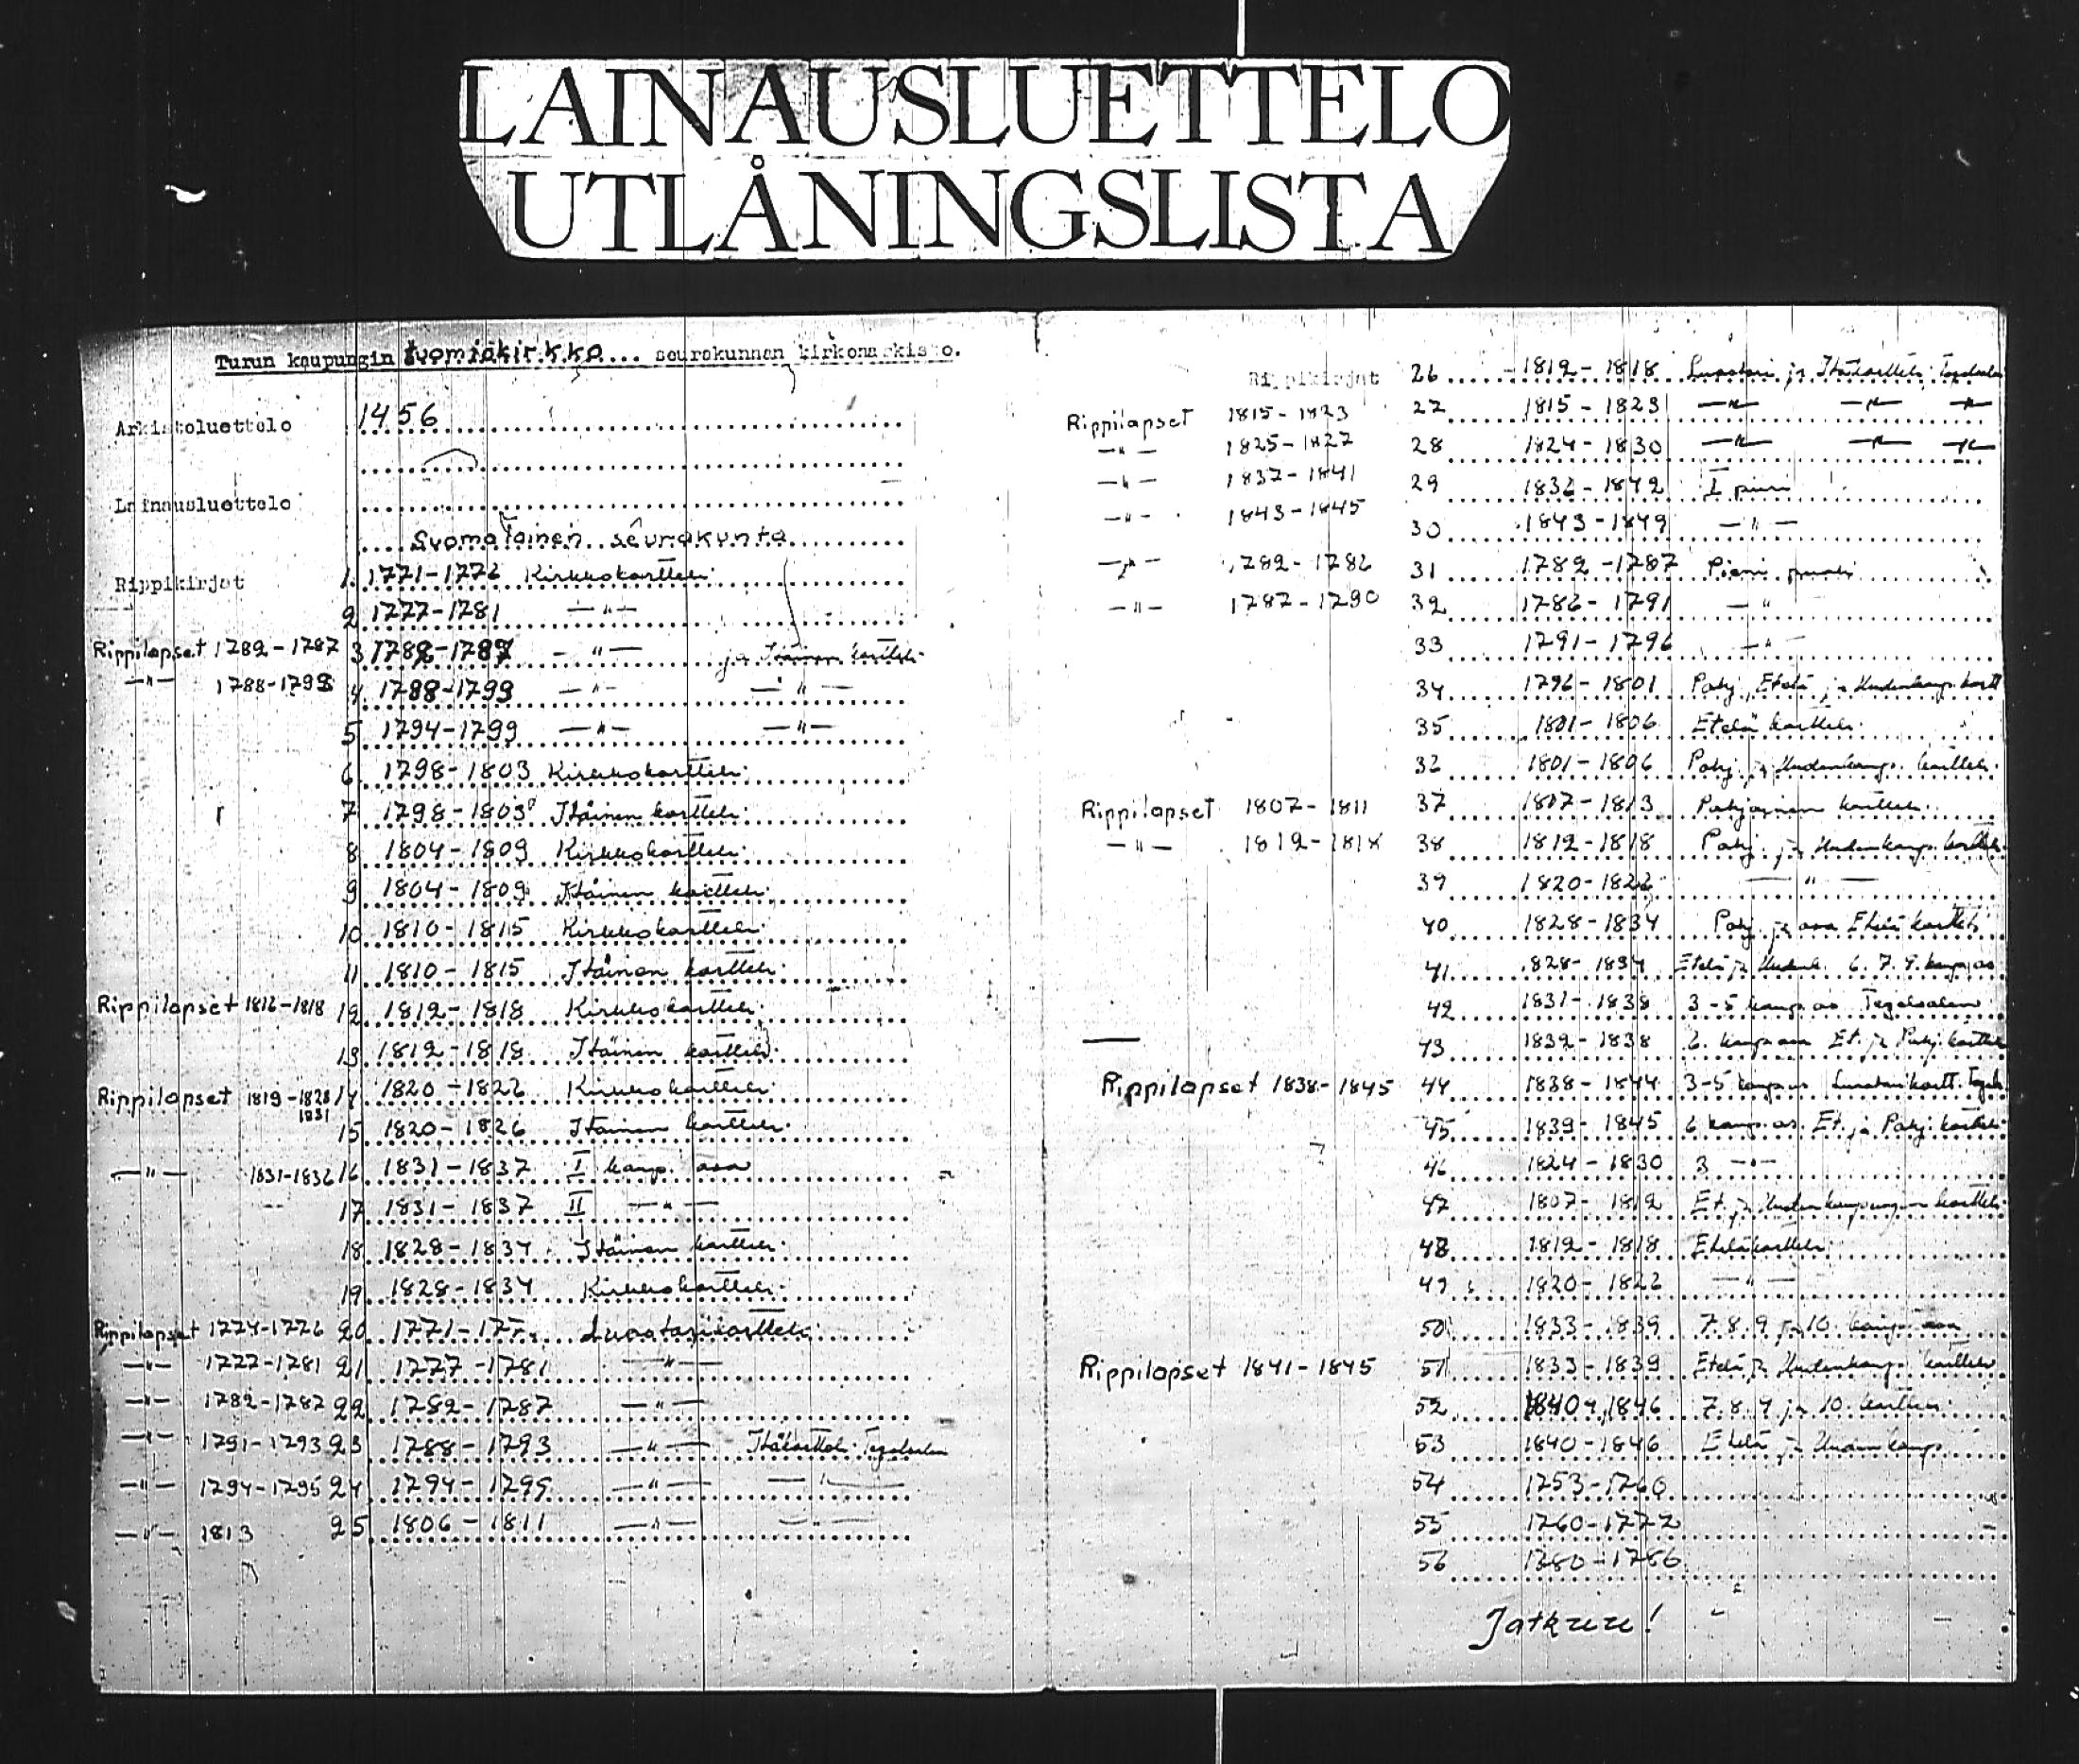 LAINAUSLUETTELO
UTLÅNINGSLISTA
Turun kaupungin tuomiokirkko... seurakunnan kirkonarkisto.
Arkistoluettelo 1456
Lainausluettelo
Suomalainen seurakunta
Rippikirjat 1. 1771-1776 Kirkkokortteli
2 1777-1781 —"—
Rippilapset 1782-1787 3 1782-1787 —"— ja Itäinen kortteli
—"— 1788-1793 4 1788-1793 —"— —"—
5 1794-1799 —"— —"—
6 1798-1803 Kirkkokortteli
7 1798-1803 Itäinen kortteli
8 1804-1809 Kirkkokortteli
9 1804-1809 Itäinen kortteli
10 1810-1815 Kirkkokortteli
11 1810-1815 Itäinen kortteli
Rippilapset 1816-1818 12 1812-1818 Kirkkokortteli
13 1812-1818 Itäinen kortteli
Rippilapset 1819-1828 14 1820-1826 Kirkkokortteli
1831
15 1820-1826 Itäinen kortteli
—"— 1831-1836 16 1831-1837 I kaup. osa
17 1831-1837 II —"—
18 1828-1834 Itäinen kortteli
19 1828-1834 Kirkkokortteli
Rippilapset 1774-1776 20 1771-177 Luostarikortteli
—"— 1777-1781 21 1777-1781 —"—
—"— 1782-1787 22 1782-1787 —"—
—"— 1791-1793 23 1788-1793 —"— Itäkortteli
—"— 1794-1795 24 1794-1799 —"— —"—
—"— 1813 25 1806-1811 —"— —"—
Rippikirjat 26 1812-1818 Luostari ja Itäkortteli
Rippilapset 1815-1823 27 1815-1823 —"— —"— —"—
—"— 1825-1827 28 1824-1830 —"— —"— —"—
—"— 1837-1841 29 1836-1842 I piiri
—"— 1843-1845 30 1843-1849 —"—
—"— 1782-1786 31 1782-1787 Pieni puoli
—"— 1787-1790 32 1786-1791 —"—
33 1791-1796 —"—
34 1796-1801 Pohj., Etelä ja Uudenkaup. kortt
35 1801-1806 Etelä kortteli
1801-1806 Pohj. ja Uudenkaup. kortteli
Rippilapset 1807-1811 37 1807-1813 Pohjoinen kortteli
—"— 1812-1818 38 1812-1818 Pohj. ja Uudenkaup. kortteli
39 1820-1826 —"—
40 1828-1834 Pohj. ja osa Etelä kortteli
41 1828-1834 Etelä ja 6. 7. kaup. os
42 1831-1838 3-5 kaup. os
43 1832-1838 6. kaup. osa Et. ja Pohj. kortteli
Rippilapset 1838-1845 44 1838-1844 3-5 kaup. os Luostarikortt.
45 1839-1845 6 kaup. os. Et. ja Pohj. kortteli
46 1824-1830 3 —"—
47 1807-1812 Et. ja Uudenkaupungin kortteli
48 1812-1818 Eteläkortteli
49 1820-1826 —"—
50 1833-1839 7. 8. 9 ja 10. kaup. osa
Rippilapset 1841-1845 51 1833-1839 Etelä ja Uudenkaup. kortteli
52 1840-1846 7. 8. 9 ja 10. kortteli
53 1840-1846 Etelä ja Uudenkaup.
54 1753-1760
55 1760-1772
56 1780-1786
Jatkuu!